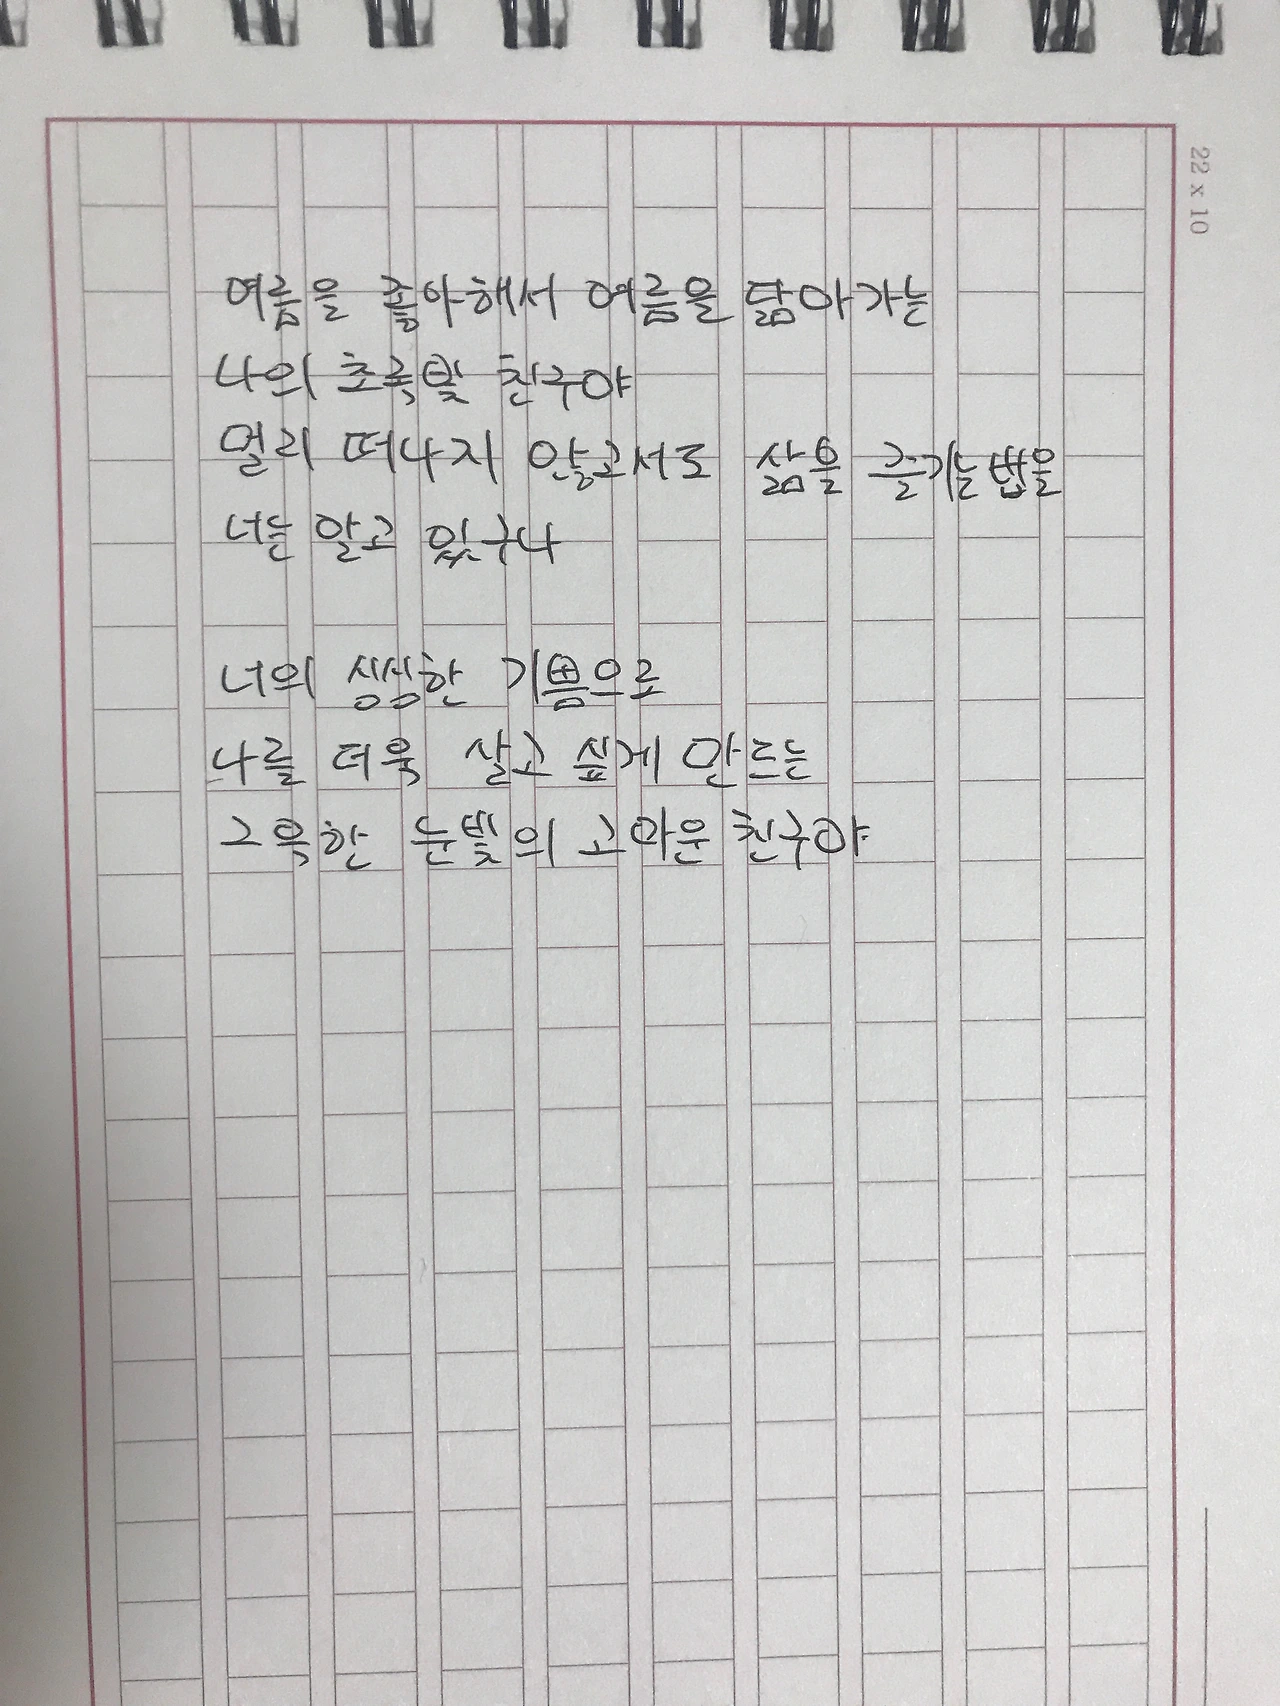 22 x 10
여름을 좋아해서 여름을 닮아가는
나의 초록빛 친구야
멀리 떠나지 않고서도 삶을 즐기는 법을
너는 알고 있구나
너의 싱싱한 기쁨으로
나를 더욱 살고 싶게 만드는
그윽한 눈빛의 고마운 친구야